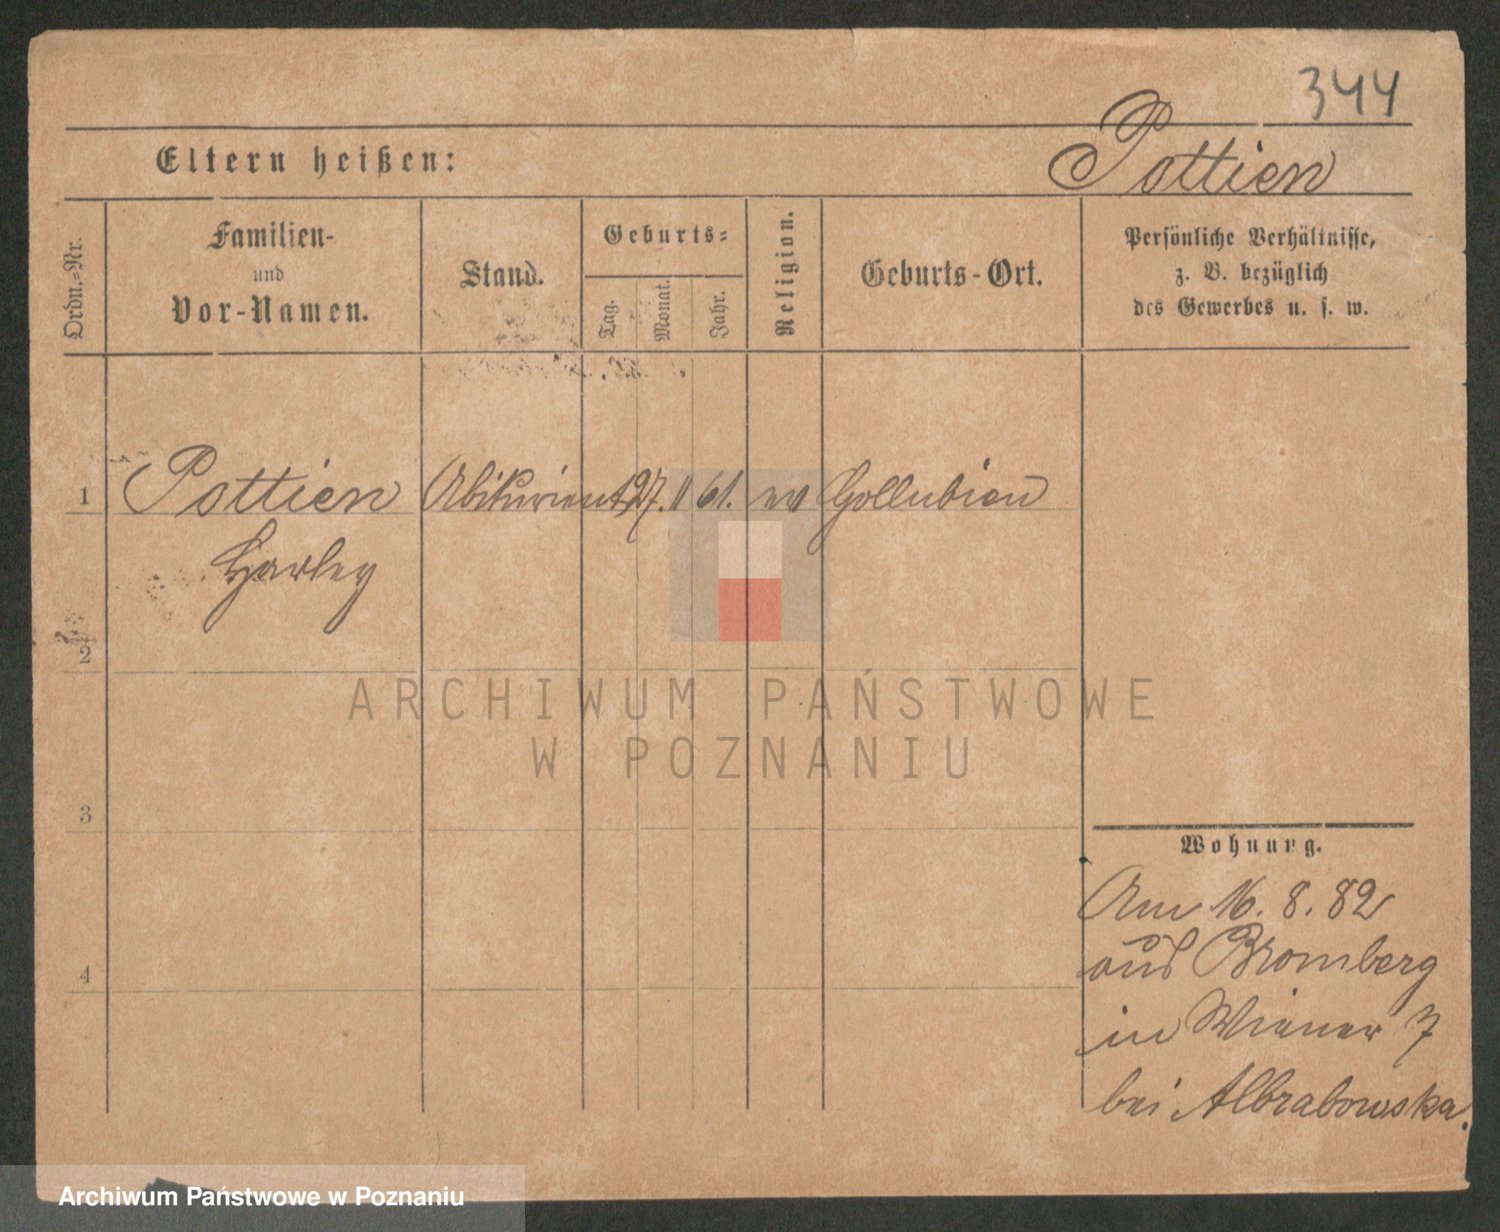 344
Eltern heißen: Pottien
Ordn.-Nr.
Familien-
und
Vor-Namen.
Stand.
Geburts-
Tag.
Monat.
Jahr.
Religion.
Geburts-Ort.
Persönliche Verhältnisse,
z. B. bezüglich
des Gewerbes u. s. w.
1 Pottien Abiturient 27. 11 61. ev Gollubien
Harley
2
3
4
Wohnung.
Am 16. 8. 82
aus Bromberg
in Wiener 7
bei Albrabowska.
ARCHIWUM PAŃSTWOWE
W POZNANIU
Archiwum Państwowe w Poznaniu